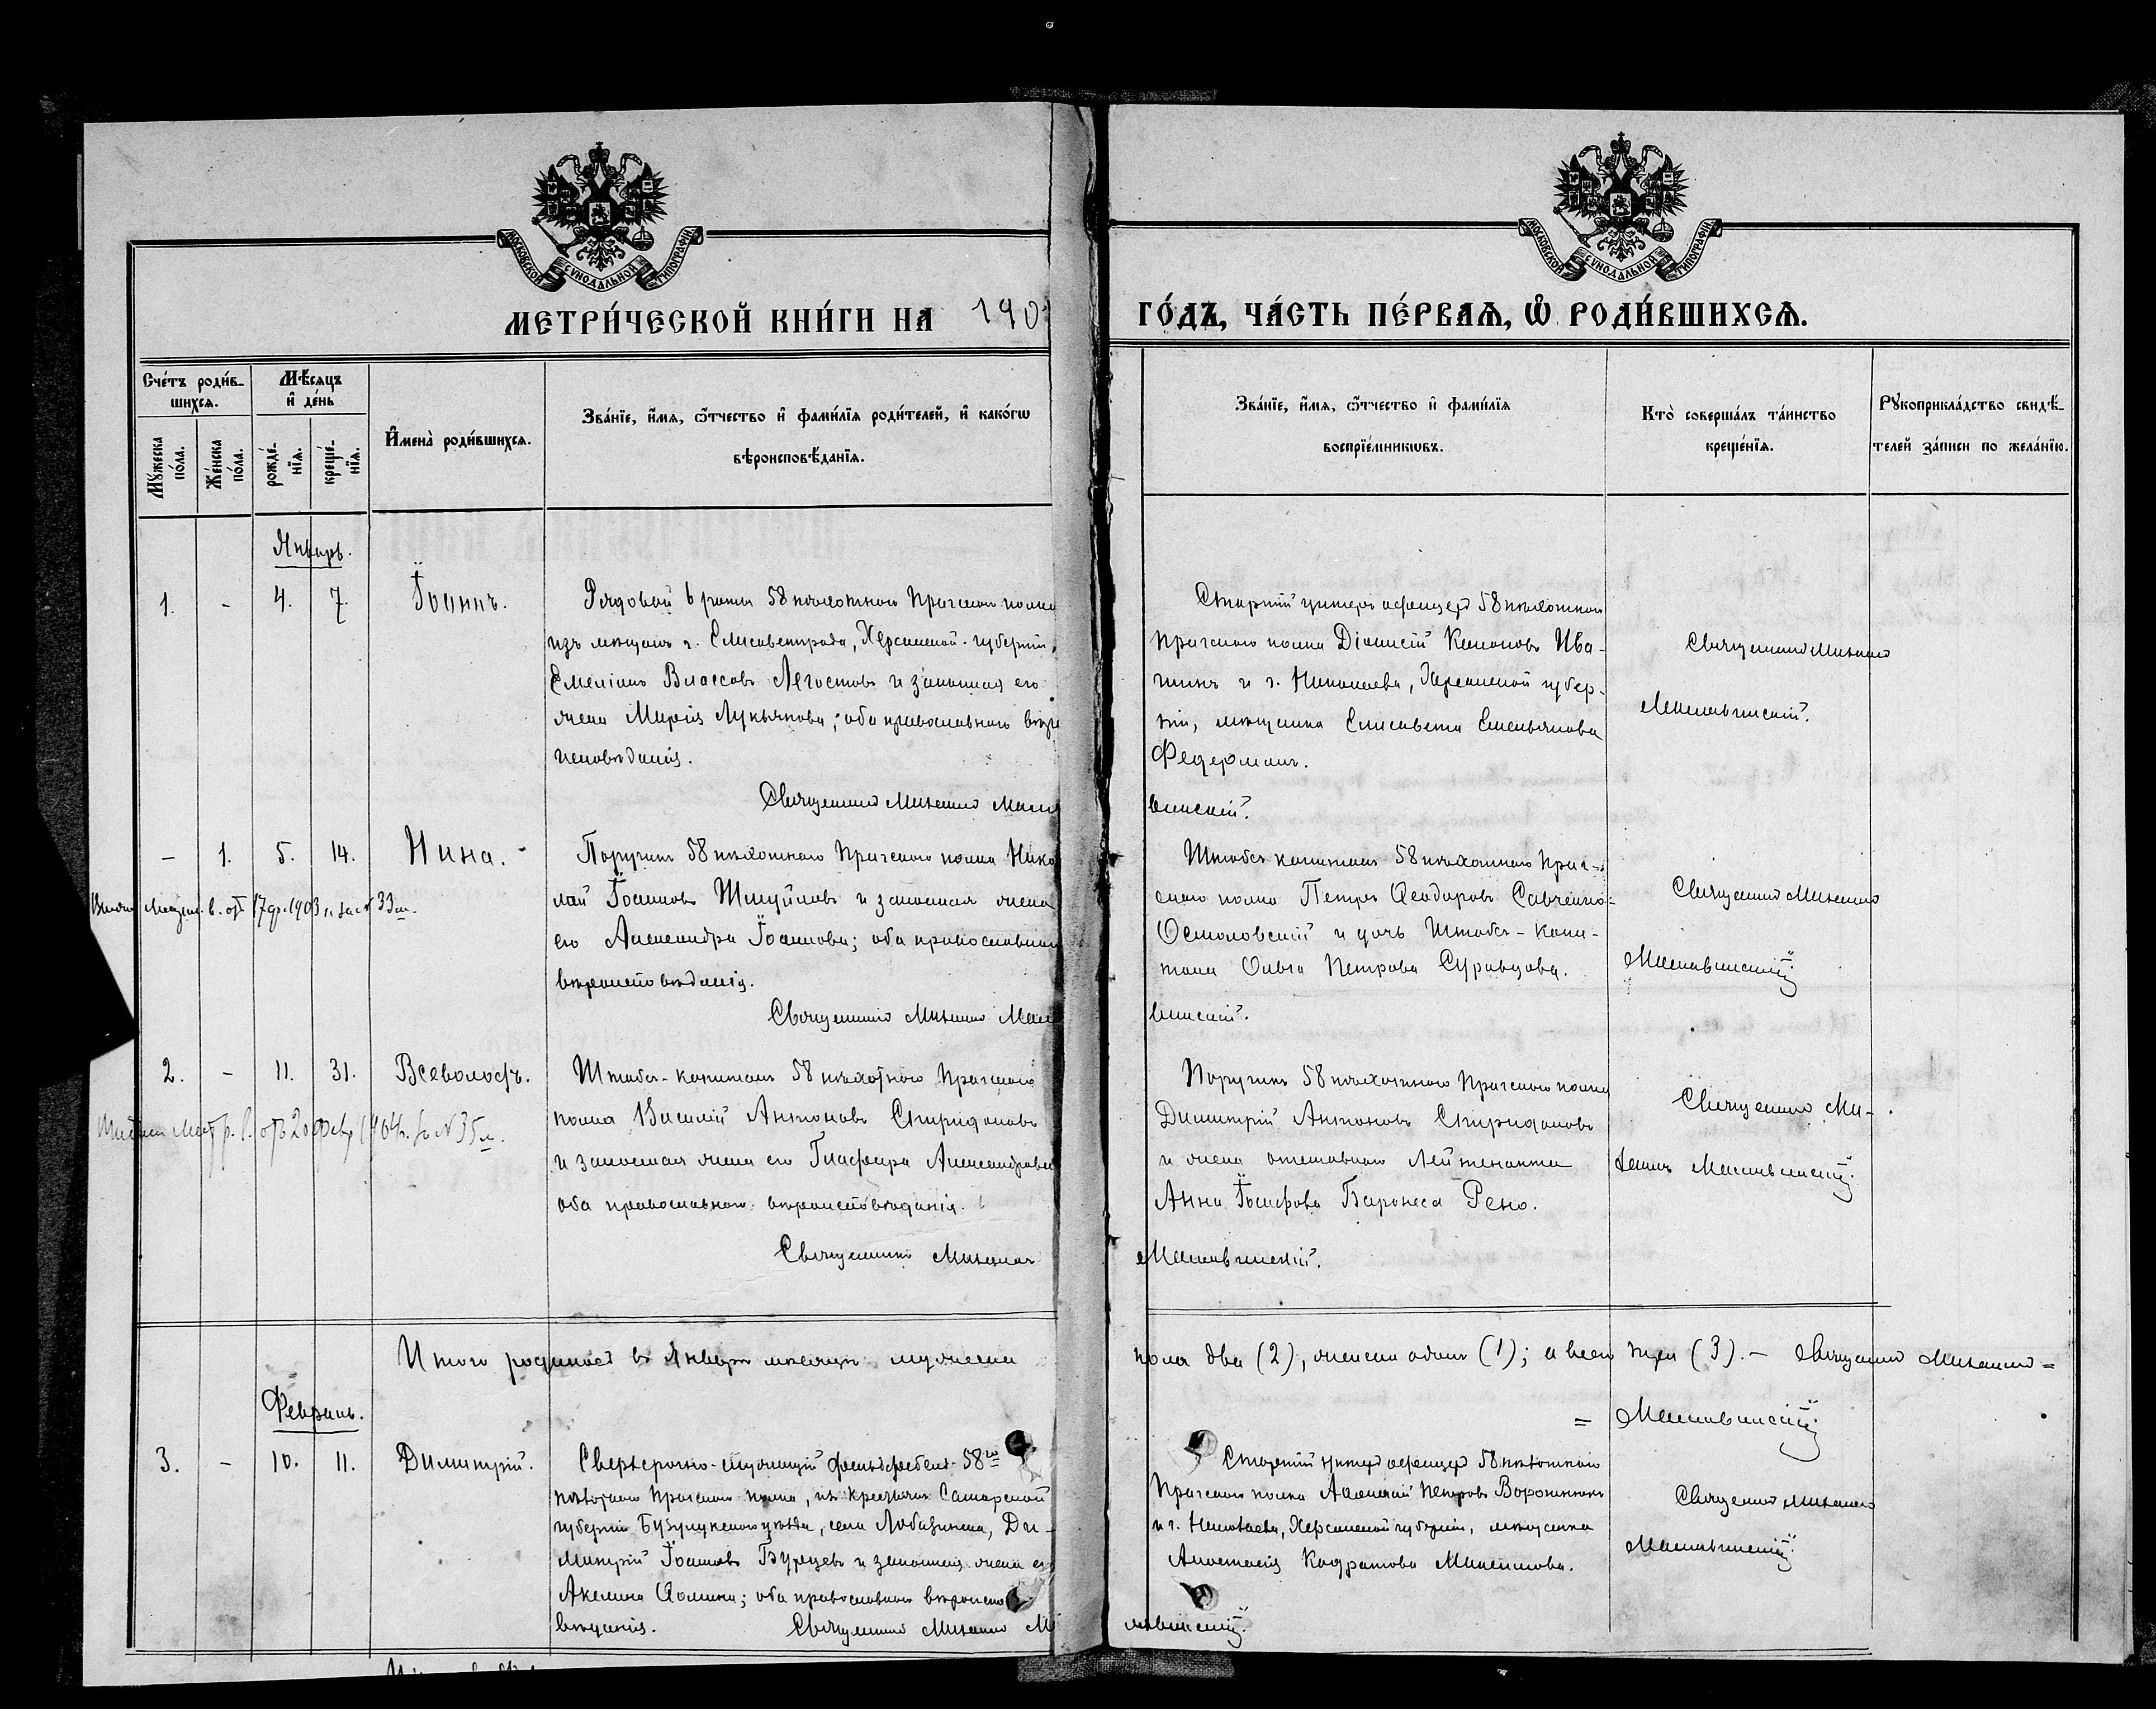 МОСКОВСКОЙ СѴНОДАЛЬНОЙ ТИПОГРАФІИ
МОСКОВСКОЙ СѴНОДАЛЬНОЙ ТИПОГРАФІИ
МЕТРИ́ЧЕСКОЙ КНИ́ГИ НА 190
ГО́ДЪ, ЧА́СТЬ ПЕ́РВАѦ, Ѡ҆ РОДИ́ВШИХСѦ.
Сче́тъ роди́в-
шихсѧ.
Мѣ́сѧцъ
и҆ де́нь
Мꙋ́жеска
по́ла.
Же́нска
по́ла.
рожде́-
нїѧ.
креще́-
нїѧ.
И҆мена̀ роди́вшихсѧ.
Зва́нїе, и҆́мѧ, ѻ҆́тчество и҆ фами́лїѧ роди́телей, и҆ како́гѡ
вѣроисповѣ́данїѧ.
Зва́нїе, и҆́мѧ, ѻ҆́тчество и҆ фами́лїѧ
воспрїе́мникѡвъ.
Кто̀ соверша́лъ та́инство
креще́нїѧ.
Рꙋкоприкла́дство свидѣ́-
телей за́писи по жела́нїю.
Январь.
1. - 4. 7. Іоаннъ.
Рядовой 6 роты 58 пѣхотнаго Прагскаго полка
изъ мѣщанъ г. Елисаветграда, Херсонской губерніи,
Емеліанъ Власовъ Легостовъ и законная его
жена Марія Лукьянова; оба православнаго вѣро
исповѣданія.
Священникъ Михаилъ
Старшій унтеръ офицеръ 58 пѣхотнаго
Прагскаго полка Діонисій Ива-
и г. Николаева, Херсонской губер-
ніи, мѣщанка Елисавета Емельянова
Федерманъ.
винскій.
Священникъ Михаилъ
– 1. 5. 14. Нина.
Поручикъ 58 пѣхотнаго Прагскаго полка Нико
лай Іоанновъ и законная жена
его Александра Іоаннова; оба православнаго
вѣроисповѣданія.
Священникъ Михаилъ
1903 г. за № 33
Штабсъ капитанъ 58 пѣхотнаго Праг-
скаго полка Петръ Ѳеодоровъ Савченко-
и дочь Штабсъ-капи-
тана Ольга Петрова Суравцова.
винскій.
Священникъ Михаилъ
2. - 11. 31. Всеволодъ.
Штабсъ-капитанъ 58 пѣхотнаго Прагскаго
полка Василій Антоновъ Спиридоновъ
и законная жена его Глафира Александрова
оба православнаго вѣроисповѣданія.
Священникъ Михаилъ
за № 35
Поручикъ 58 пѣхотнаго Прагскаго полка
Димитрій Антоновъ Спиридоновъ
и жена отставного Лейтенанта
Анна Іосифова Баронеса Рено.
Священникъ Ми-
хаилъ
Итого родилось въ Январѣ мѣсяцѣ мужеска
пола два (2), женска одинъ (1); а всего три (3). – Священникъ Михаилъ =
=
Февраль.
3. - 10. 11. Димитрій.
Сверхсрочно-служащій фельдфебель 58го
пѣхотнаго Прагскаго полка, изъ крестьянъ Самарской
губерніи Бузулукскаго уѣзда, села Лобазинка, Ди-
митрій Іоанновъ Бурцевъ и законная жена его
Акелина; оба православнаго вѣроиспо
вѣданія. Священникъ Михаилъ
Старшій унтеръ офицеръ 58 пѣхотнаго
Прагскаго полка Петровъ
и г. Николаева, Херсонской губерніи, мѣщанка
Анастасія
Священникъ Михаилъ